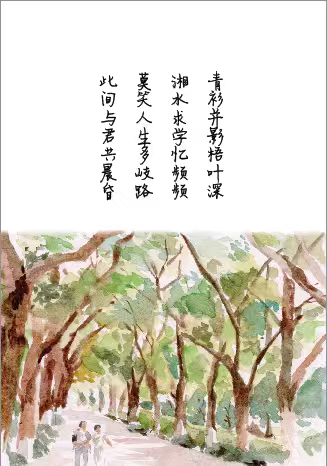 青衫并影梧叶深
湘水求学忆频频
莫笑人生多岐路
此间与君共晨昏